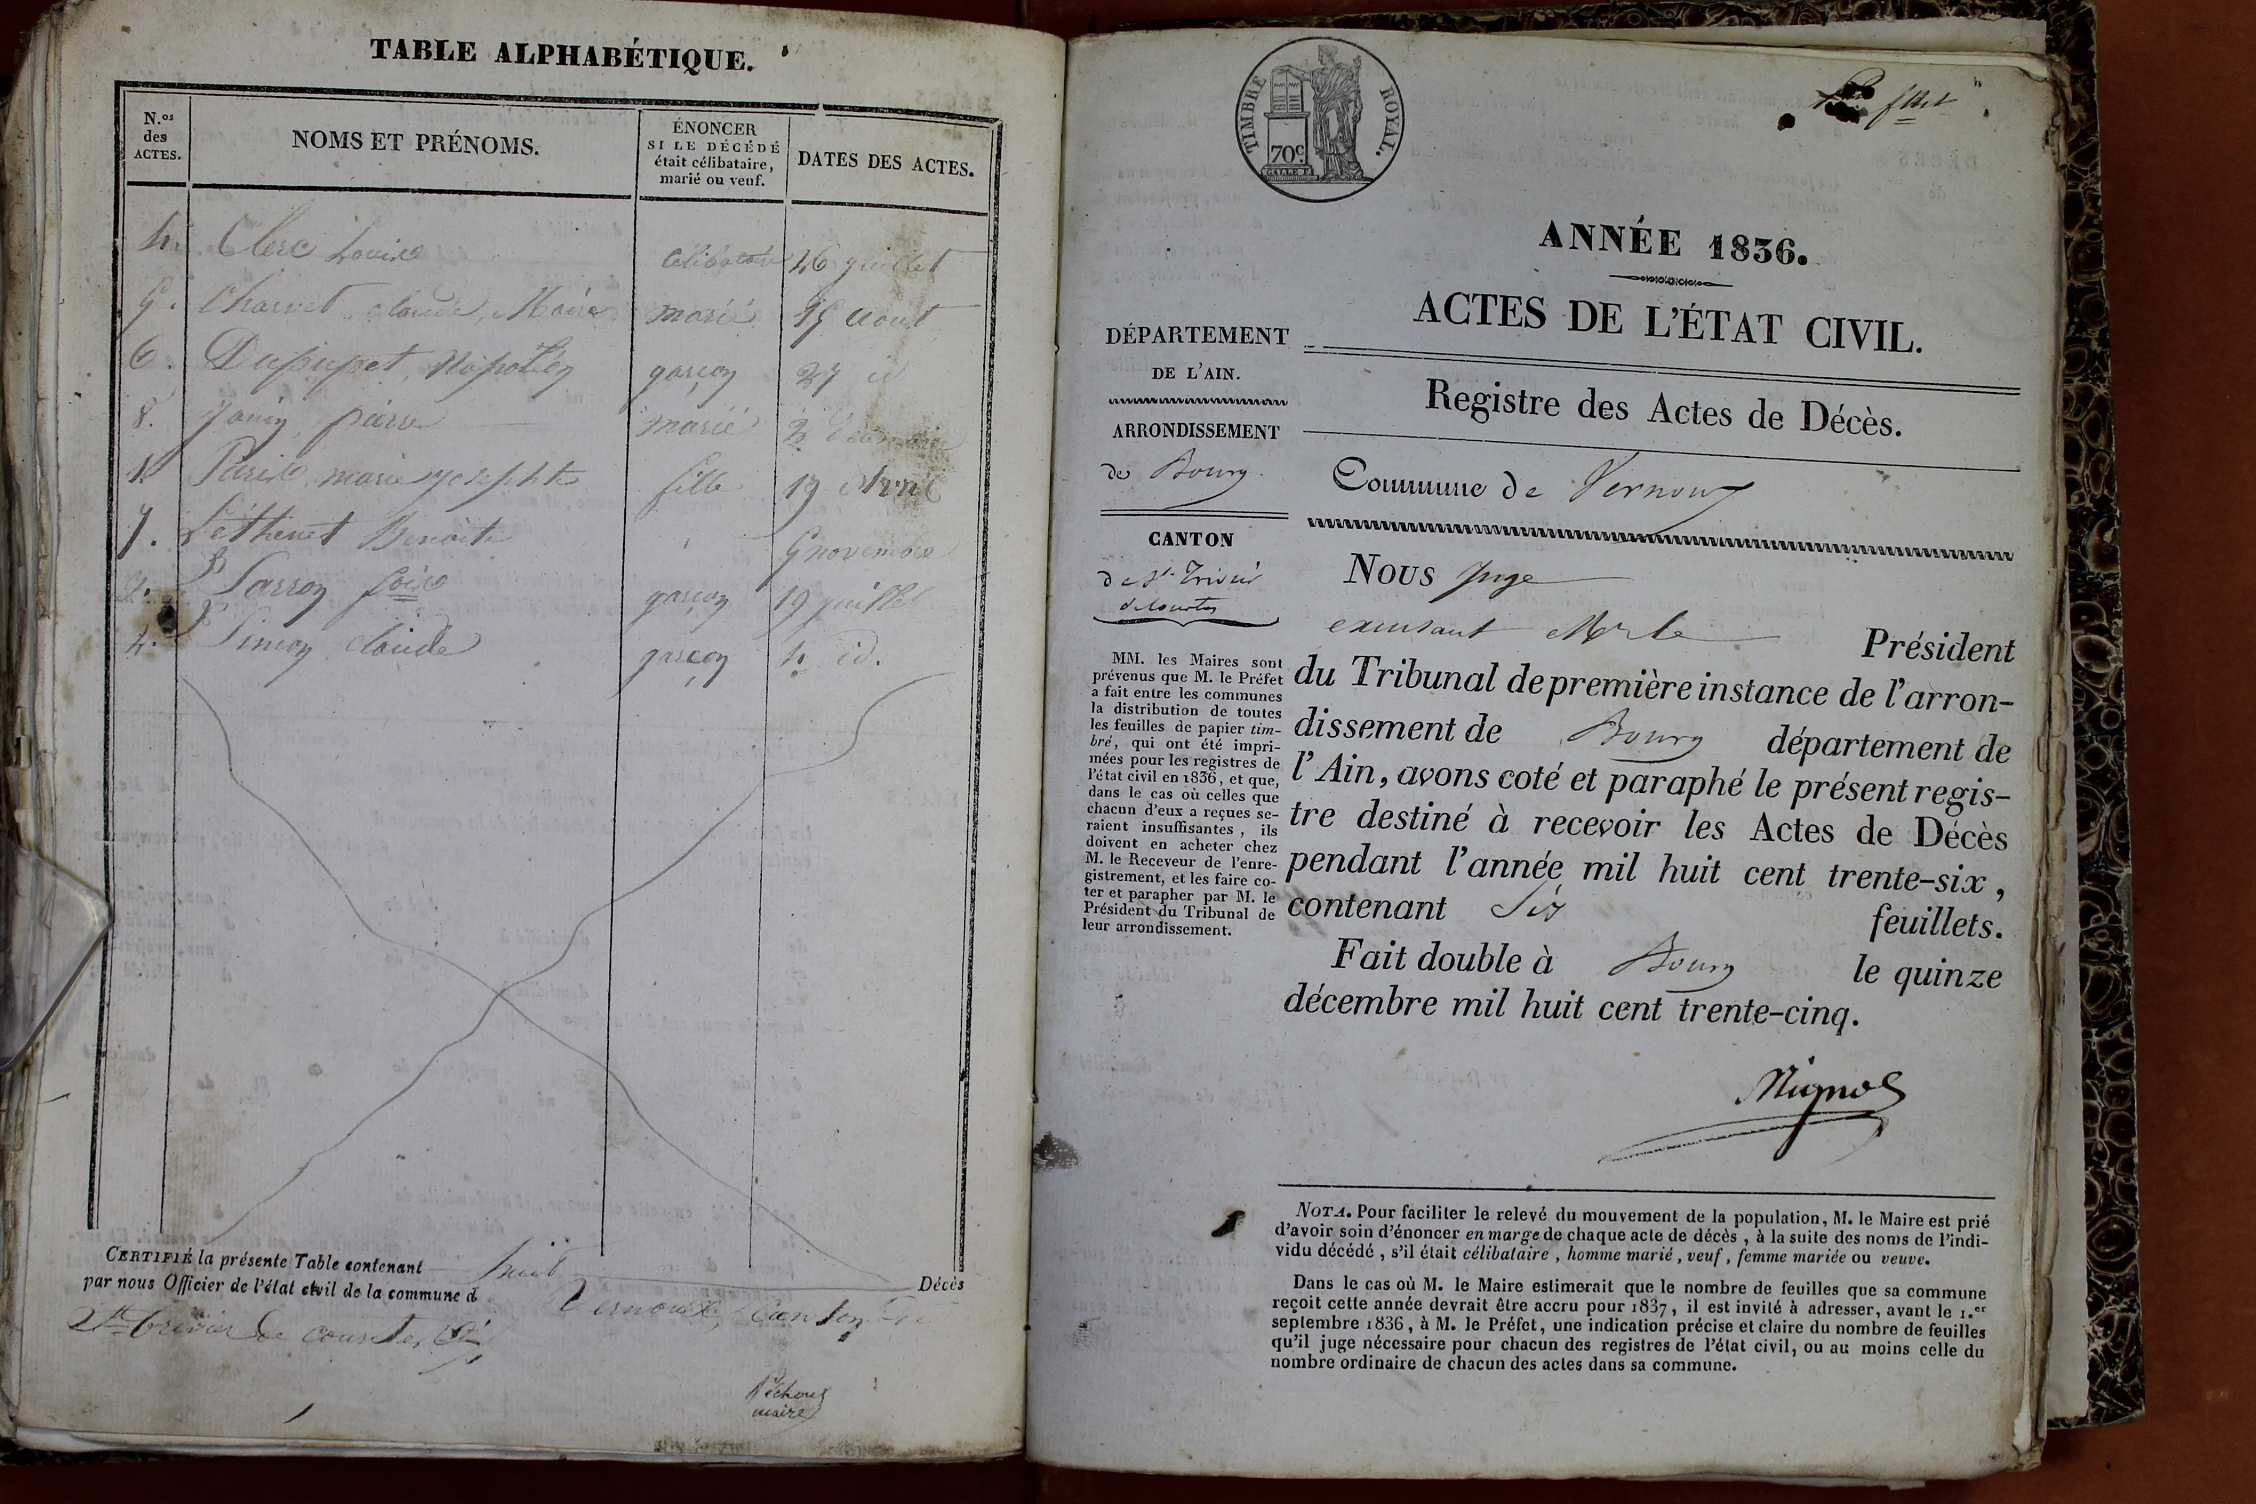 TABLE ALPHABÉTIQUE.
N.os des ACTES.
NOMS ET PRÉNOMS.
ÉNONCER SI LE DÉCÉDÉ était célibataire, marié ou veuf.
DATES DES ACTES.
Clerc Louise célibataire 26 juillet
5. Charvet, claude, Marie marié 15 aout
6. Dupupet, Napoléon garçon 27 id
8. Janin, pierre marié 2 Décembre
1. marie josephte fille 19 Avril
7. Péthenet Benoite 9 novembre
garçon 19 juillet
claude garçon id.
CERTIFIÉ la présente Table contenant huit Décès
par nous Officier de l'état civil de la commune d Vernoux, Canton de
St trivier de courtes
maire
TIMBRE ROYAL.
70c.
ANNÉE 1836.
ACTES DE L'ÉTAT CIVIL.
Registre des Actes de Décès.
Commune de Vernoux
DÉPARTEMENT
DE L'AIN.
ARRONDISSEMENT
de Bourg
CANTON
de St Trivier
de Courtes
MM. les Maires sont
prévenus que M. le Préfet
a fait entre les communes
la distribution de toutes
les feuilles de papier tim-
bré, qui ont été impri-
mées pour les registres de
l'état civil en 1836, et que,
dans le cas où celles que
chacun d'eux a reçues se-
raient insuffisantes, ils
doivent en acheter chez
M. le Receveur de l'enre-
gistrement, et les faire co-
ter et parapher par M. le
Président du Tribunal de
leur arrondissement.
NOUS juge
exerçant Mr le Président
du Tribunal de première instance de l'arron-
dissement de Bourg département de
l'Ain, avons coté et paraphé le présent regis-
tre destiné à recevoir les Actes de Décès
pendant l'année mil huit cent trente-six,
contenant Six feuillets.
Fait double à Bourg le quinze
décembre mil huit cent trente-cinq.
NOTA. Pour faciliter le relevé du mouvement de la population, M. le Maire est prié
d'avoir soin d'énoncer en marge de chaque acte de décès, à la suite des noms de l'indi-
vidu décédé, s'il était célibataire, homme marié, veuf, femme mariée ou veuve.
Dans le cas où M. le Maire estimerait que le nombre de feuilles que sa commune
reçoit cette année devrait être accru pour 1837, il est invité à adresser, avant le 1.er
septembre 1836, à M. le Préfet, une indication précise et claire du nombre de feuilles
qu'il juge nécessaire pour chacun des registres de l'état civil, ou au moins celle du
nombre ordinaire de chacun des actes dans sa commune.